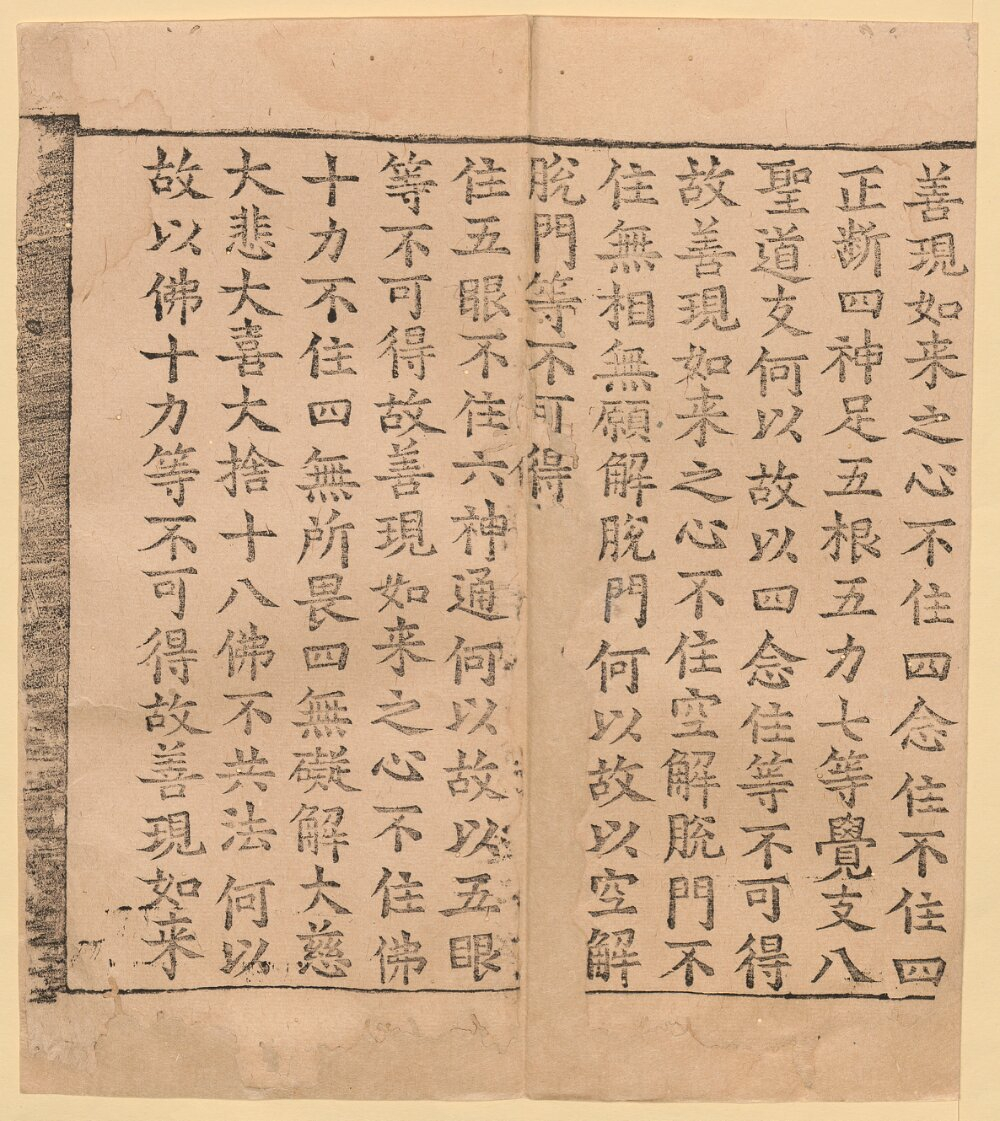 善現如来之心不住四念住不住四
正断四神足五根五力七等覺支八
聖道支何以故以四念住等不可得
故善現如来之心不住空解脫門不
住無相無願解脫門何以故以空解
脫門等不可得
住五眼不住六神通何以故以五眼
等不可得故善現如来之心不住佛
十力不住四無所畏四無礙解大慈
大悲大喜大捨十八佛不共法何以
故以佛十力等不可得故善現如来